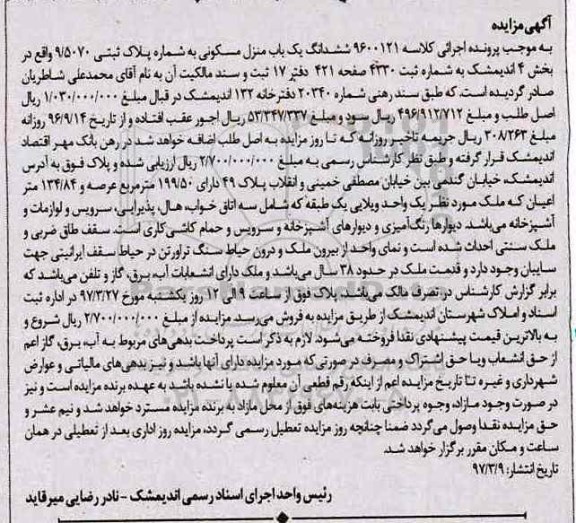 آگهی مزایده
به موجب پرونده اجرائی کلاسه ۹۶۰۰۱۲۱ ششدانگ یک باب منزل مسکونی به شماره پلاک ثبتی ۹/۵۰۷۰ واقع در
بخش ۴ اندیمشک به شماره ثبت ۴۳۳۰ صفحه ۴۲۱ دفتر ۱۷ ثبت و سند مالکیت آن به نام آقای محمدعلی شاطریان
صادر گردیده است، که طبق سند رهنی شماره ۲۰۳۴۰ دفترخانه ۱۳۲ اندیمشک در قبال مبلغ ۱/۰۳۰/۰۰۰/۰۰۰ ریال
اصل طلب و مبلغ ۴۹۶/۹۱۲/۷۱۲ ریال سود و مبلغ ۵۳/۳۴۷/۳۳۷ ریال اجور عقب افتاده و از تاریخ ۹۶/۹/۱۴ روزانه
مبلغ ۳۰۸/۲۶۳ ریال جریمه تاخیر روزانه که تا روز مزایده به اصل طلب اضافه خواهد شد در رهن بانک مهر اقتصاد
اندیمشک قرار گرفته و طبق نظر کارشناس رسمی به مبلغ ۲/۷۰۰/۰۰۰/۰۰۰ ریال ارزیابی شده و پلاک فوق به آدرس
اندیمشک، خیابان گندمی بین خیابان مصطفی خمینی و انقلاب پلاک ۴۹ دارای ۱۹۹/۵۰ مترمربع عرصه و ۱۳۴/۸۴ متر
اعیان که ملک مورد نظر یک واحد ویلایی یک طبقه که شامل سه اتاق خواب، هال، پذیرایی، سرویس و لوازمات و
آشپزخانه می‌باشد. دیوارها رنگ‌آمیزی و دیوارهای آشپزخانه و سرویس و حمام کاشی‌کاری است. سقف طاق ضربی و
ملک سنتی احداث شده است و نمای واحد از بیرون ملک و درون حیاط سنگ تراورتن در حیاط سقف ایرانیتی جهت
سایبان وجود دارد و قدمت ملک در حدود ۳۸ سال می‌باشد و ملک دارای انشعابات آب، برق، گاز و تلفن می‌باشد که
برابر گزارش کارشناس در تصرف مالک می‌باشد. پلاک فوق از ساعت ۹ الی ۱۲ روز یکشنبه مورخ ۹۷/۳/۲۷ در اداره ثبت
اسناد و املاک شهرستان اندیمشک از طریق مزایده به فروش می‌رسد. مزایده از مبلغ ۲/۷۰۰/۰۰۰/۰۰۰ ریال شروع و
به بالاترین قیمت پیشنهادی نقدا فروخته می‌شود. لازم به ذکر است پرداخت بدهی‌های مربوط به آب، برق، گاز اعم
از حق انشعاب ویا حق اشتراک و مصرف در صورتی که مورد مزایده دارای آنها باشد و نیز بدهی‌های مالیاتی و عوارض
شهرداری و غیره تا تاریخ مزایده اعم از اینکه رقم قطعی آن معلوم شده یا نشده باشد به عهده برنده مزایده است و نیز
در صورت وجود مازاد، وجوه پرداختی بابت هزینه‌های فوق از محل مازاد به برنده مزایده مسترد خواهد شد و نیم عشر و
حق مزایده نقدا وصول می‌گردد ضمنا چنانچه روز مزایده تعطیل رسمی گردد، مزایده روز اداری بعد از تعطیلی در همان
ساعت و مکان مقرر برگزار خواهد شد.
تاریخ انتشار: ۹۷/۳/۹
رئیس واحد اجرای اسناد رسمی اندیمشک - نادر رضایی میرقاید